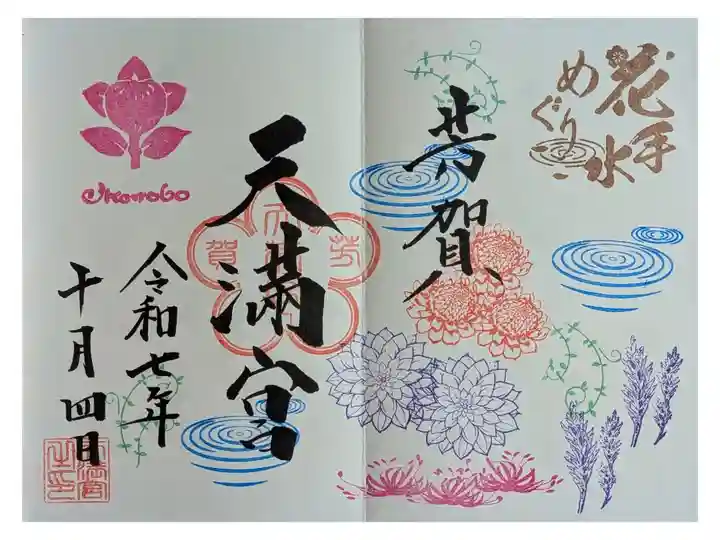 花手水
めぐり
芳賀
天満宮
芳
天
賀
令和七年
十月四日